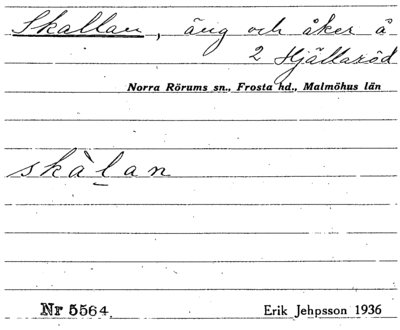 Skallan, äng och åker å
2 Hjällaröd
Norra Rörums sn., Frosta hd., Malmöhus län
skàl̠an
Nr 5564
Erik Jehpsson 1936